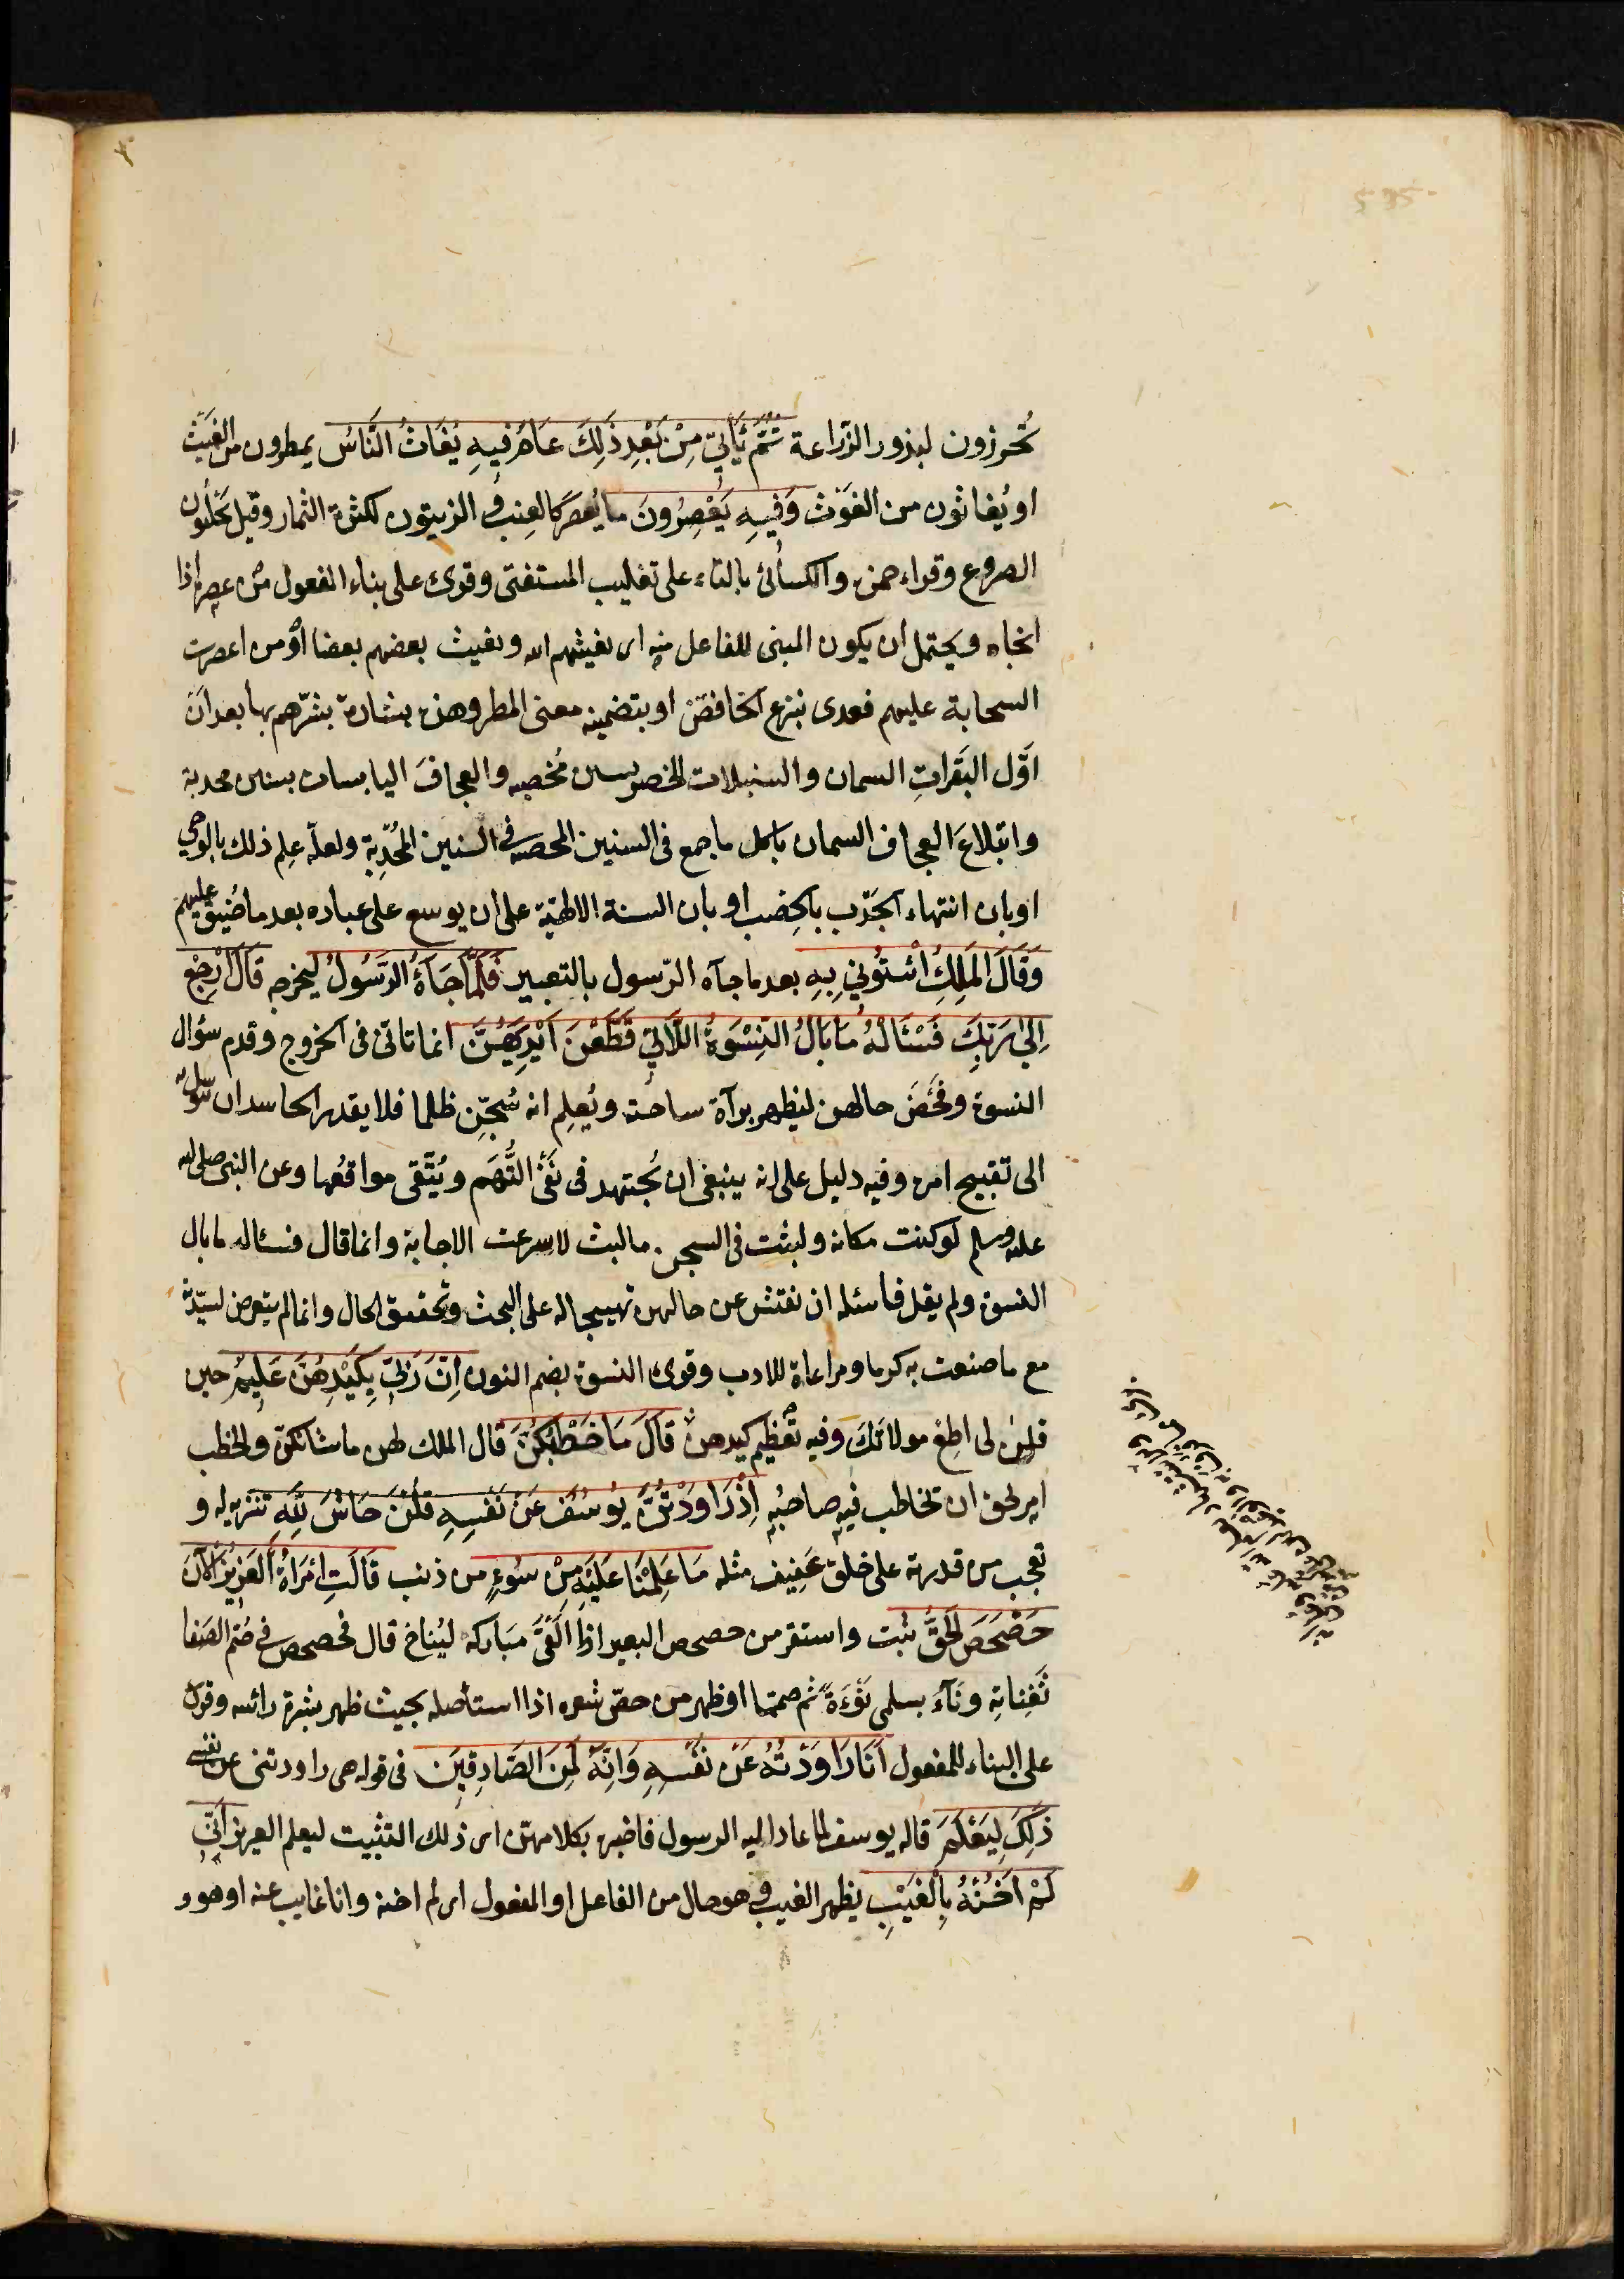 تُحرزون لبذور الزّراعة ثُمَّ يَأتِي مِنْ بَعْدِ ذَلِكَ عَامٌ فِيهِ يُغَاثُ النَّاسُ يمطرون من الغَيْث
او يُغاثون من الغَوْث وَفِيهِ يَعْصِرُونَ ما يُعصَر كالعِنب و الزيتون لكثرة الثمار وقيل يَحْلُبون
الضروع وقراء حمزة والكسائى بالتاء على تغليب المستفتى وقرئ على بناء المفعول من عصره اذا
انجاه ويحتمل ان يكون المبنى للفاعل منه اى يغيثهم الله ويغيث بعضهم بعضا او من اعصرت
السحابة عليهم فعدى بنزع الخافض او بتضمينه معنى المطر وهذه بشارة بشّرهم بها بعد ان
اوّل البَقَراتِ السمان والسنبلات الخضر بسنين مُخصبه والعجافَ اليابسات بسنين مجدبة
وابتلاعَ العجاف السمان باكل ما جمع فى السنين المخصبه فى السنين المُجْدِبَة ولعلّه عِلم ذلك بالوحى
او بان انتهاء الجَدْب بالخِصْب او بان السنة الالهيّة على ان يوسع على عباده بعد ما ضُيق عليهم
وَقَالَ المَلِكُ ائْتُونِي بِهِ بعد ما جآه الرّسول بالتعبير فَلَمَّا جَآءَهُ الرَّسُولُ ليخرجه قَالَ ارْجِعْ
اِلَى رَبِّكَ فَسْئَالْهُ مَا بَالُ النِّسْوَةِ اللَّاتِي قَطَّعْنَ اَيْدِيَهُنَّ انما تانّى فى الخروج وقدم سؤال
النسوة وفَحْصَ حالهن ليظهر برآة ساحته ويُعلِم انه سُجِنَ ظلما فلا يقدر الحاسد ان يتوسل به
الى تقبيح امره وفيه دليل على انه ينبغى ان يُجتهد فى نَفى التُّهَم ويُتَّقى مواقعُها وعن النبى صلى الله
عليه وسلم لو كنت مكانه ولبثت فى السجن ما لبث لاسرعت الاجابة وانما قال فسئاله ما بال
النسوة ولم يقل فاسئله ان يفتش عن حالهن تهييجا له على البحث وتحقيق الحال وانما لم يتعرض لسيّدته
مع ما صنعت به كرما ومراعاة للادب وقرئ النسوة بضم النون اِنَّ رَبِّي بِكَيْدِهِنَّ عَلِيمٌ حين
قلن لى اطِعْ مولاتَكَ وفيه تعْظيم كيدهن قَالَ مَا خَطْبُكُنَّ قال الملك لهن ما شانكنّ والخطب
امر يحق ان يخاطب فيه صاحبُه اِذْ رَاوَدْتُنَّ يُوسُفَ عَنْ نَفْسِهِ قُلْنَ حَاشَ لِلَّهِ تنزيه له و
تعجب من قدرته على خلق عَفيف مثله مَا عَلِمْنَا عَلَيْهِ مِنْ سُوءٍ من ذنب قَالَتِ امْرَاةُ الْعَزِيزِ الآنَ
حَصْحَصَ الْحَقُّ ثبت واستقر من حصحص البعير اذا الْقَى مَباركه ليُناخ قال فحصحص فى صُم الصَفا
ثَفِناتِهِ ونَآءَ بسلمى نَوْءَةً ثم صمّما او ظهر من حصّ شعره اذا استأصله بحيث ظهر بشرة رائسه وقرئ
على البناء للمفعول اَنَا رَاوَدْتُهُ عَنْ نَفْسِهِ وَاِنَّهُ لَمِنَ الصَّادِقِينَ فى قوله هى راودتنى عن نفسى
ذَلِكَ لِيَعْلَمَ قاله يوسف لما عاد اليه الرسول فاخبره بكلامهنّ اى ذلك التثبيت ليعلم العزيز اَنِّي
لَمْ اَخُنْهُ بِالْغَيْبِ بظهر الغيب و هو حال من الفاعل او المفعول اى لم اخنه وانا غايب عنه او هو و